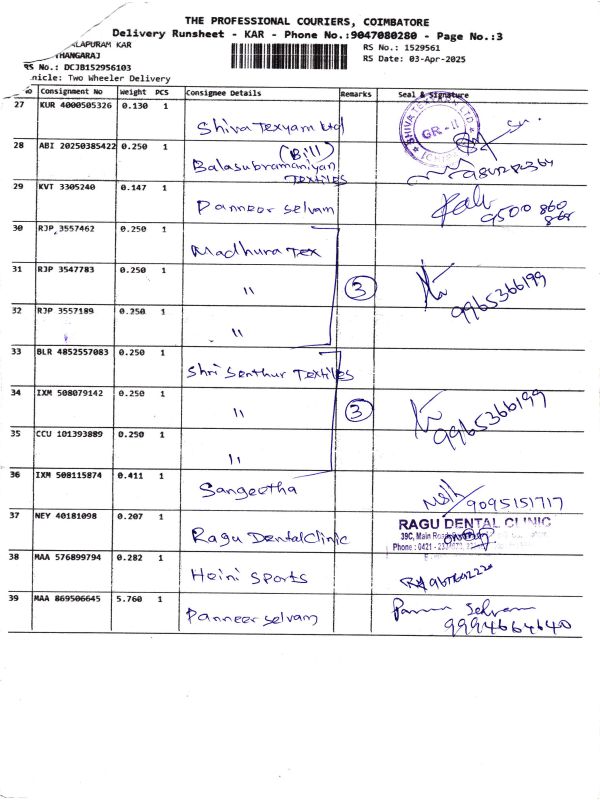 THE PROFESSIONAL COURIERS, COIMBATORE
Delivery Runsheet - KAR - Phone No.:9047080280 - Page No.:3
ALAPURAM KAR
THANGARAJ
RS No.: DCJB152956103
nicle: Two Wheeler Delivery
RS No.: 1529561
RS Date: 03-Apr-2025
o Consignment No Weight PCS Consignee Details Remarks Seal & Signature
27 KUR 4000505326 0.130 1 Shiva Texyarn Ltd SHIVA TEXYARN LTD GR-II
28 ABI 20250385422 0.250 1 (Bill) Balasubramaniyan Textiles
29 KVT 3305240 0.147 1 Panneer selvam 9500 860
30 RJP 3557462 0.250 1 Madhura Tex
31 RJP 3547783 0.250 1 " 3 9965366199
32 RJP 3557189 0.250 1 "
33 BLR 4852557083 0.250 1 Shri Senthur Textiles
34 IXM 508079142 0.250 1 " 3 9965366199
35 CCU 101393889 0.250 1 "
36 IXM 508115874 0.411 1 Sangeetha 9095151717
37 NEY 40181098 0.207 1 Ragu Dental Clinic RAGU DENTAL CLINIC
39C, Main Road
Phone : 0421 -
38 MAA 576899794 0.282 1 Heini Sports
39 MAA 869506645 5.760 1 Panneer selvam Selvam
9994664640